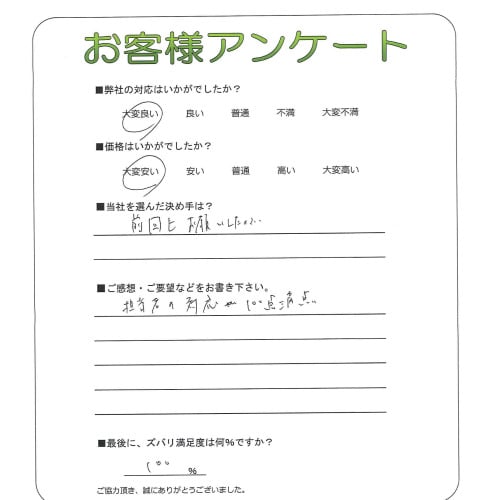 お客様アンケート
■弊社の対応はいかがでしたか？
大変良い 良い 普通 不満 大変不満
■価格はいかがでしたか？
大変安い 安い 普通 高い 大変高い
■当社を選んだ決め手は？
前回もお願いしたから
■ご感想・ご要望などをお書き下さい。
担当者の対応が100点満点
■最後に、ズバリ満足度は何％ですか？
100 %
ご協力頂き、誠にありがとうございました。